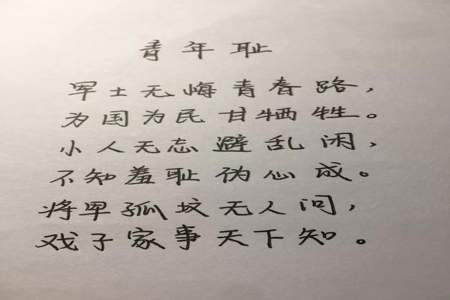 青年耻
军士无悔青春路，
为国为民甘牺牲。
小人无志避乱闲，
不知羞耻伪心成。
将军孤坟无人问，
戏子家事天下知。